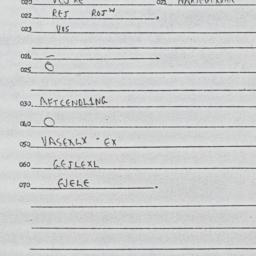 022 REJ ROJW
023 VOS
024 –
025 O
030 AFTCENDLING
040 O
050 VASEXLX - EX
060 GEJLEXL
070 EJELE